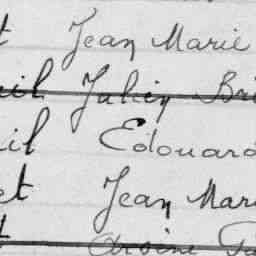 t Jean Marie
il Julien Bri
il Edouard
et Jean Mari
t Arsène